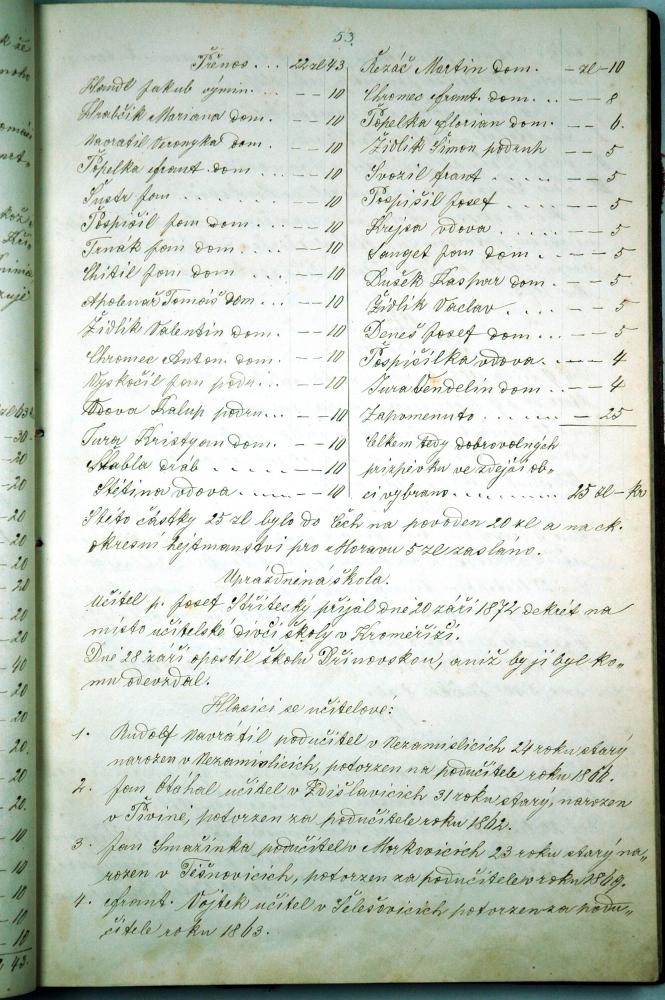 53.
Přenos . . . 22 zl 43
Handl Jakub výmin. . . — — 10
Hrabčik Mariana dom. — — 10
Navratil Veronyka dom. — — 10
Popelka Frant. dom. . . — — 10
Šustr Jan . . . . . . . — — 10
Pospíšil Jan dom. . . . — — 10
Trnák Jan dom. . . . — — 10
Chitil Jan dom. . . . — — 10
Tomáš dom . . . — — 10
Židlík Valentin dom. . — — 10
Chromec Anton. dom. — — 10
Vyskočil Jan podr. . . — — 10
Vdova Kalup podru. . . — — 10
Jura Kristyan dom. — — 10
Stabla dráb . . . . . — — 10
Stětina vdova. . . . . — — 10
Řezáč Martin dom. . — zl — 10
Chromec Frant. dom. . . — — 8
Popelka Florian dom. . . — — 6.
Židlík Šimon podruh — — 5
Svozil Frant . . . . . — — 5
Pospíšil Josef . . . . — — 5
Krejsa vdova . . . . . — — 5
Langet Jan dom . . . — — 5
Dušek Kašpar dom . — — 5
Židlík Vaclav . . . . — — 5
Deneš Josef dom . . . — — 5
Pospíšilka vdova. . . — — 4
Jura Vendelin dom. . . — — 4
Zapomenuto . . . . . . — 25
Celkem tedy dobrovolných
příspěvku ve zdejší ob-
ci vybrano . . . . . . . . 25 zl — kr
Stéto částky 25 zl bylo do Čech na povoden 20 zl a na ck.
okresní hejtmanstvi pro Moravu 5 zl zasláno.
Uprázdnina škola.
Učitel p. Josef Střítecký přijal dne 20 září 1872 dekrét na
misto učitelské dívčí školy v Kroměříži.
Dne 28 září opostil školu Dřinovskou, aniž by ji byl ko-
mu odevzdal.
Hlasici se učitelove:
1. Rudolf Navrátil podučitel v Nezamislicich 24 roku starý
narozen v Nezamislicich, potvrzen na podučitele roku 1866.
2. Jan Otáhal učitel v Zdislavicich 31 roku starý, narozen
v Tiviné, potvrzen za podučitele roku 1862.
3. Jan Smažinka podučitel v Morkovicich 23 roku starý na-
rozen v Těšnovicich, potvrzen za podučitele v roku 1869.
4. Frant. Vojtek učitel v Šelešovicich potvrzen za podu-
čitele roku 1863.